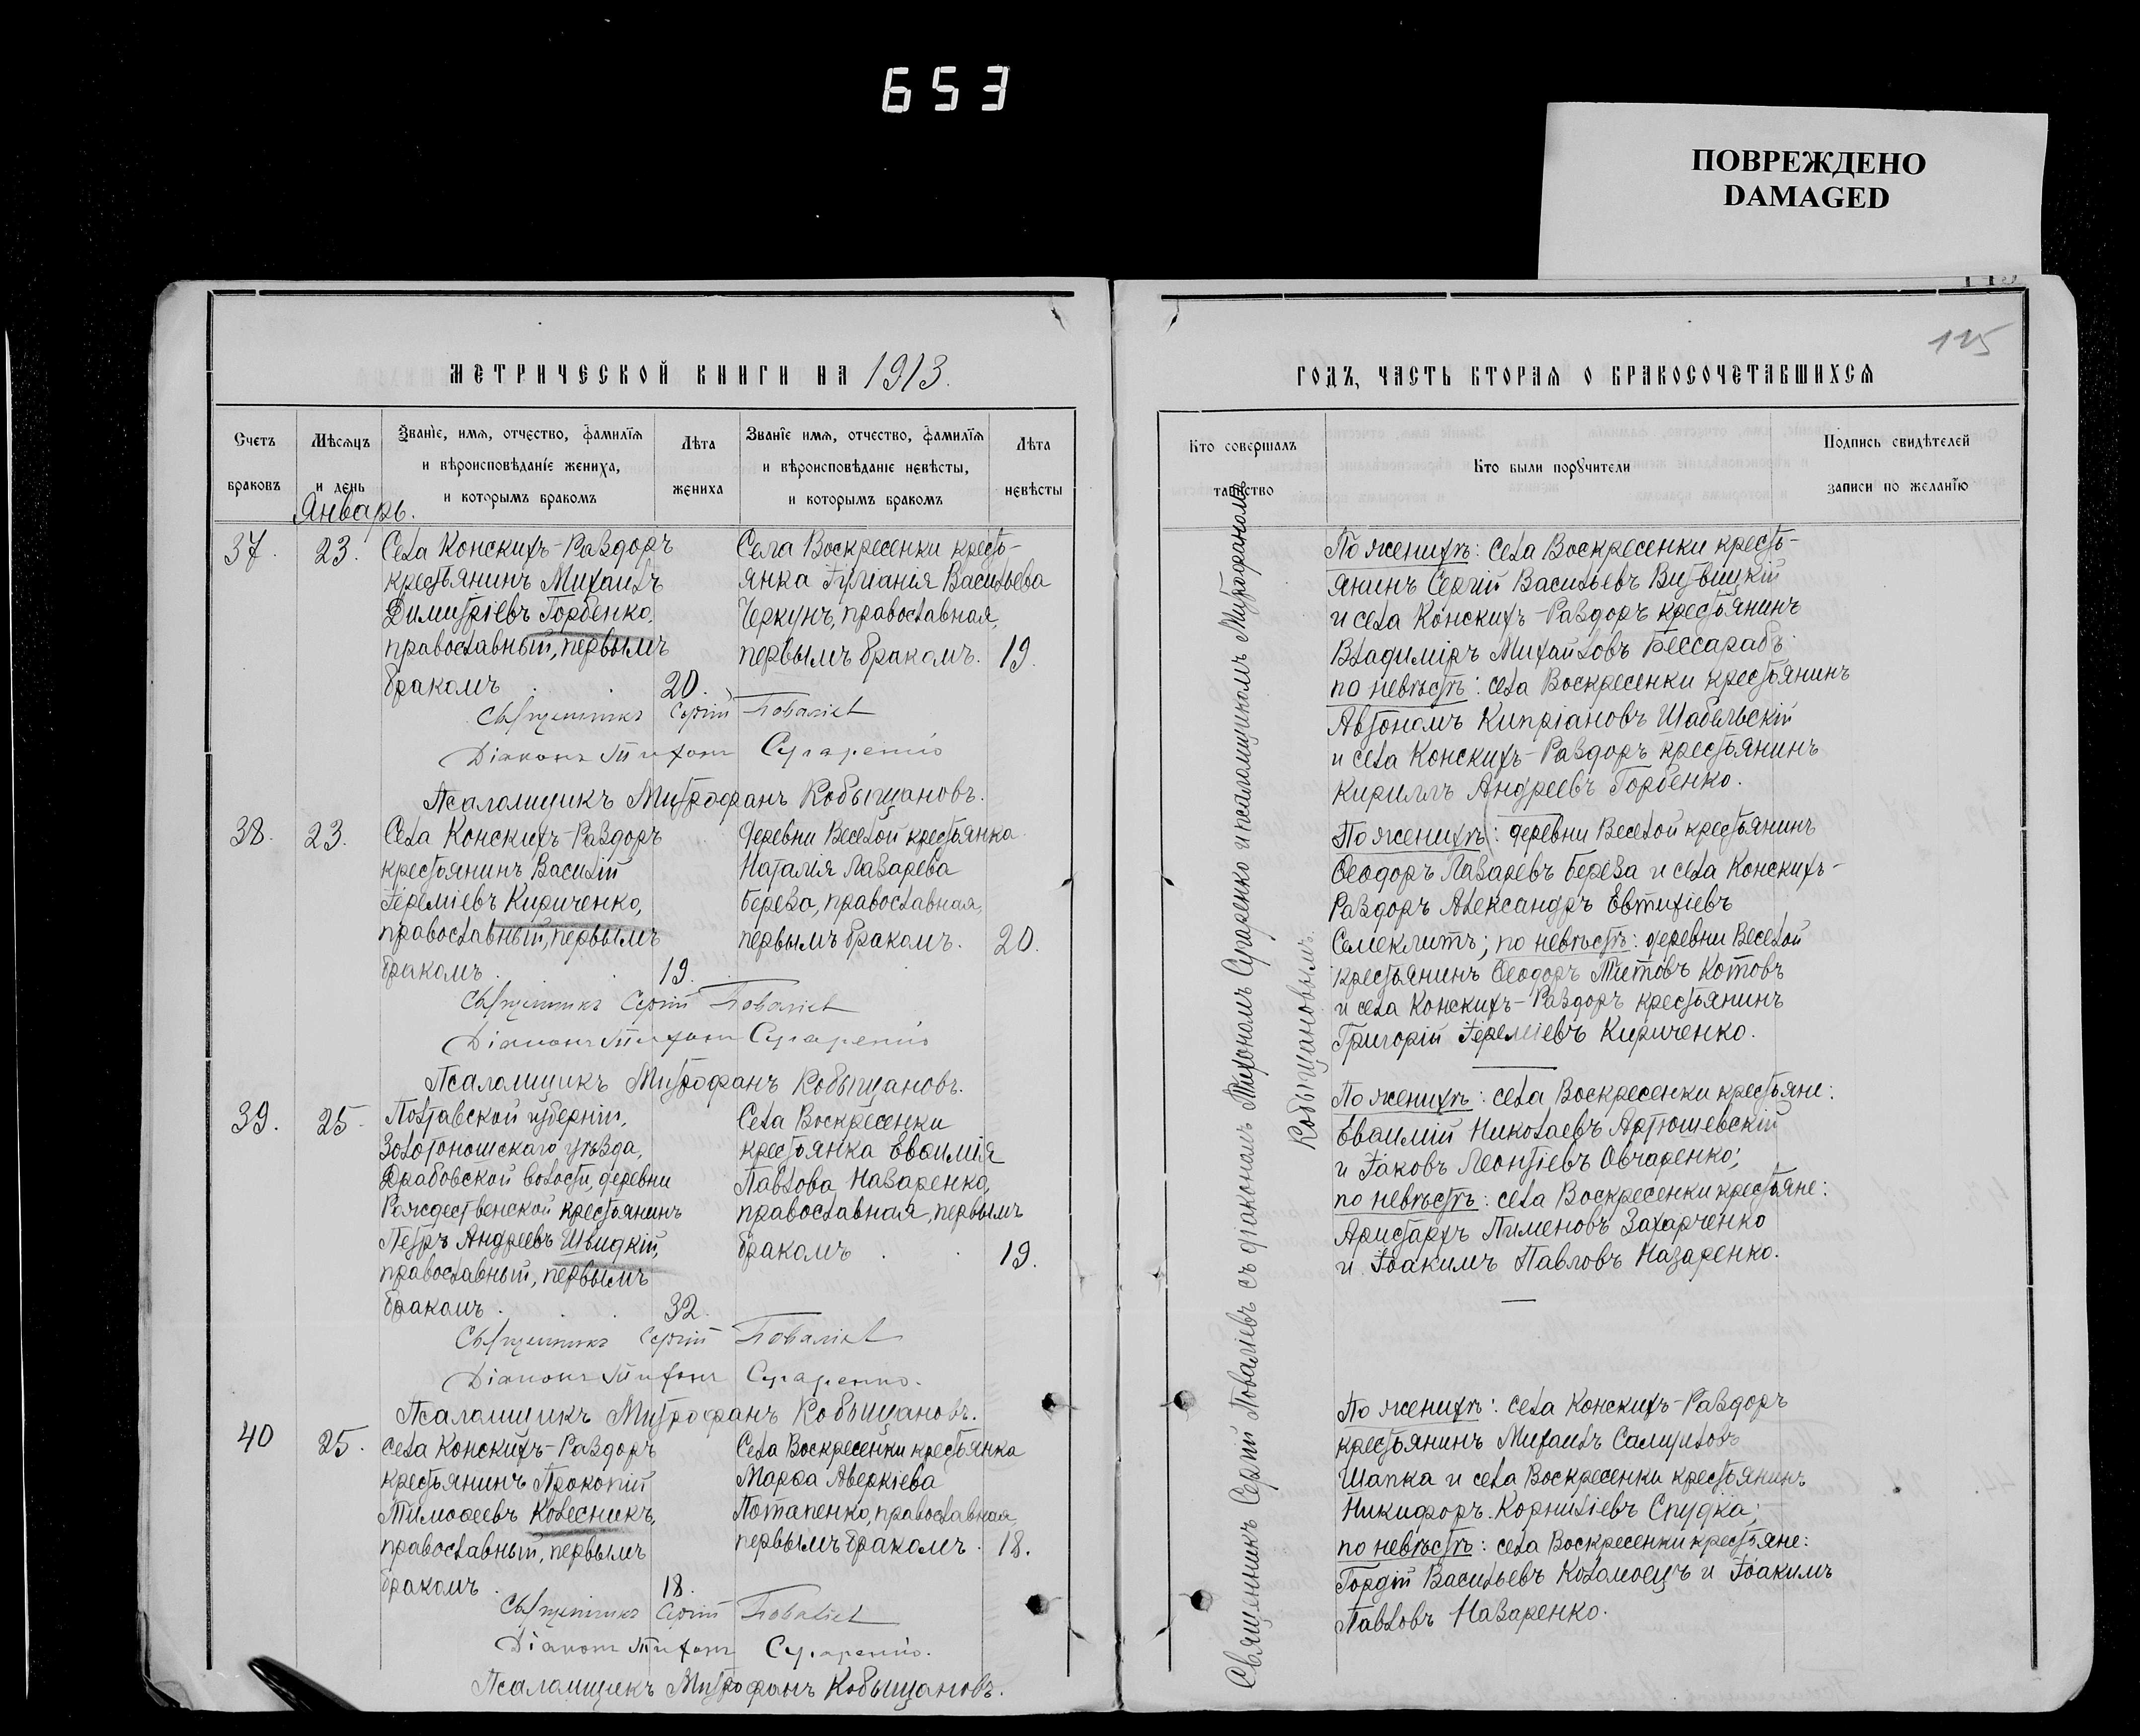 653
ПОВРЕЖДЕНО
DAMAGED
125
МЕТРИЧЕСКОЙ КНИГИ НА 1913.
Счетъ браковъ
Мѣсяцъ и день
Званіе, имя, отчество, фамилія и вѣроисповѣданіе жениха, и которымъ бракомъ
Лѣта жениха
Званіе имя, отчество, фамилія и вѣроисповѣданіе невѣсты, и которымъ бракомъ
Лѣта невѣсты
Январь.
37. 23.
Села Конскихъ-Раздоръ
крестьянинъ Михаилъ
Димитріевъ Горбенко,
православный, первымъ
бракомъ 20.
Села Воскресенки кресть-
янка Іуліанія Васильева
Черкунъ, православная,
первымъ бракомъ. 19.
Священникъ Сергій Поваліевъ
Діаконъ Тихонъ Сугаренко
Псаломщикъ Митрофанъ Кобыщановъ.
38. 23.
Села Конскихъ-Раздоръ
крестьянинъ Василій
Іереміевъ Кириченко,
православный, первымъ
бракомъ. 19.
Деревни Веселой крестьянка
Наталія Лазарева
Береза, православная,
первымъ бракомъ. 20.
Священникъ Сергій Поваліевъ
Діаконъ Тихонъ Сугаренко
Псаломщикъ Митрофанъ Кобыщановъ.
39. 25
Полтавской губерніи,
Золотоношскаго уѣзда,
Драбовской волости, деревни
Рождественской крестьянинъ
Петръ Андреевъ Швидкій,
православный, первымъ
бракомъ. 32.
Села Воскресенки
крестьянка Евѳимія
Павлова Назаренко,
православная, первымъ
бракомъ 19.
Священникъ Сергій Поваліевъ
Діаконъ Тихонъ Сугаренко.
Псаломщикъ Митрофанъ Кобыщановъ.
40 25.
села Конскихъ-Раздоръ
крестьянинъ Прокопій
Тимоѳеевъ Колесникъ,
православный, первымъ
бракомъ. 18.
Села Воскресенки крестьянка
Марѳа Аверкіева
Потапенко, православная,
первымъ бракомъ. 18.
Священникъ Сергій Поваліевъ
Діаконъ Тихонъ Сугаренко.
Псаломщикъ Митрофанъ Кобыщановъ.
ГОДЪ, ЧАСТЬ ВТОРАЯ О БРАКОСОЧЕТАВШИХСЯ
Кто совершалъ таинство
Кто были поручители
Подпись свидѣтелей записи по желанію
Священникъ Сергій Поваліевъ съ діакономъ Тихономъ Сугаренко и псаломщикомъ Митрофаномъ
Кобыщановымъ.
По женихѣ: села Воскресенки кресть-
янинъ Сергій Васильевъ
и села Конскихъ-Раздоръ крестьянинъ
Владиміръ Михайловъ Бессарабъ
по невѣстѣ: села Воскресенки крестьянинъ
Автономъ Кипріановъ Шабельскій
и села Конскихъ-Раздоръ крестьянинъ
Кириллъ Андреевъ Горбенко.
По женихѣ: деревни Веселой крестьянинъ
Ѳеодоръ Лазаревъ Береза и села Конскихъ-
Раздоръ Александръ Евтихіевъ
по невѣстѣ: деревни Веселой
крестьянинъ Ѳеодоръ Титовъ Котовъ
и села Конскихъ-Раздоръ крестьянинъ
Григорій Іереміевъ Кириченко.
По женихѣ: села Воскресенки крестьяне:
Евѳимій Николаевъ Артюшевскій
и Іаковъ Леонтіевъ Овчаренко;
по невѣстѣ: села Воскресенки крестьяне:
Аристархъ Пименовъ Захарченко
и Іоакимъ Павловъ Назаренко.
По женихѣ: села Конскихъ-Раздоръ
крестьянинъ Михаилъ
Шапка и села Воскресенки крестьянинъ
Никифоръ Корниліевъ Спудка;
по невѣстѣ: села Воскресенки крестьяне:
Гордій Васильевъ Коломоецъ и Іоакимъ
Павловъ Назаренко.